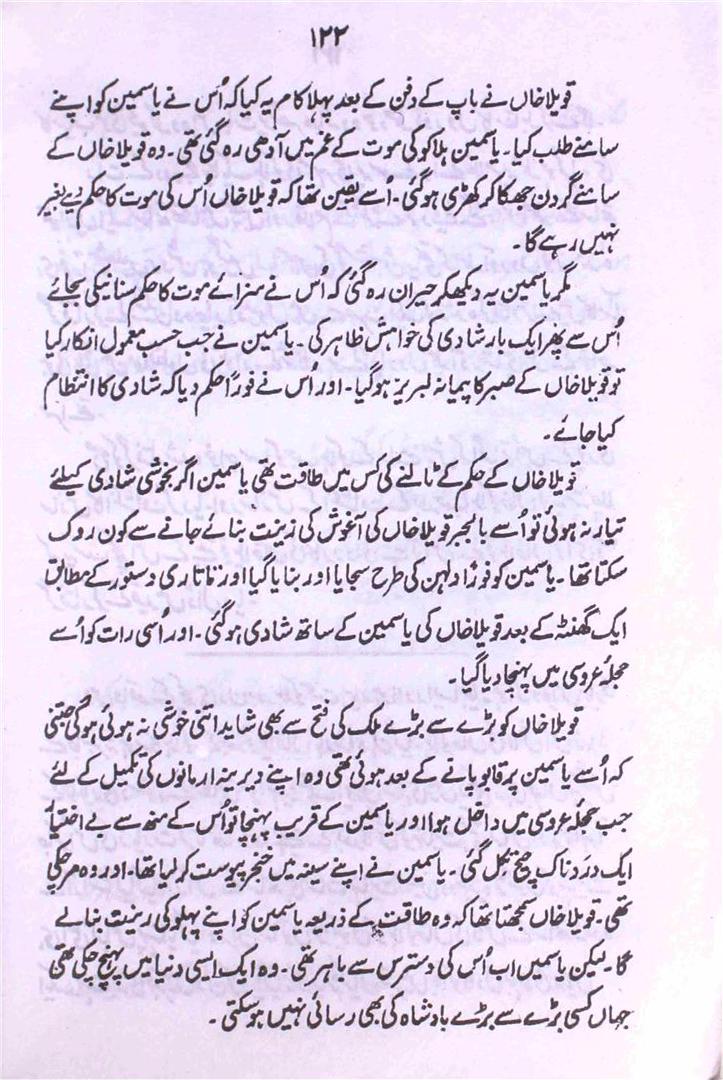 ۱۲۲
قویلا خاں نے باپ کے دفن کے بعد پہلا کام یہ کیا کہ اُس نے یاسمین کو اپنے
سامنے طلب کیا۔ یاسمین ہلاکو کی موت کے غم میں آدھی رہ گئی تھی۔ وہ قویلا خاں کے
سامنے گردن جھکا کر کھڑی ہوگئی۔ اُسے یقین تھا کہ قویلا خاں اُس کی موت کا حکم دیے بغیر
نہیں رہے گا۔
مگر یاسمین یہ دیکھکر حیران رہ گئی کہ اس نے سزائے موت کا حکم سنانیکی بجائے
اُس سے پھر ایک بار شادی کی خواہش ظاہر کی۔ یاسمین نے جب حسب معمول انکار کیا
تو قویلا خاں کے صبر کا پیمانہ لبریز ہوگیا۔ اور اُس نے فوراً حکم دیا کہ شادی کا انتظام
کیا جائے۔
قویلا خاں کے حکم کے ٹالنے کی کس میں طاقت تھی یاسمین اگر بخوشی شادی کیلئے
تیار نہ ہوئی تو اُسے بالجبر قویلا خاں کی آغوش کی زینت بنائے جانے سے کون روک
سکتا تھا۔ یاسمین کو فوراً دلہن کی طرح سجایا اور بنایا گیا اور تاتاری دستور کے مطابق
ایک گھنٹہ کے بعد قویلا خاں کی یاسمین کے ساتھ شادی ہوگئی۔ اور اُسی رات کو اُسے
حجلۂ عروسی میں پہنچا دیا گیا۔
قویلا خاں کو بڑے سے بڑے ملک کی فتح سے بھی شاید اتنی خوشی نہ ہوئی ہوگی جتنی
کہ اُسے یاسمین پر قابو پانے کے بعد ہوئی تھی وہ اپنے دیرینہ ارمانوں کی تکمیل کے لئے
جب حجلۂ عروسی میں داخل ہوا اور یاسمین کے قریب پہنچا تو اُس کے منھ سے بے اختیار
ایک دردناک چیخ نکل گئی۔ یاسمین نے اپنے سینہ میں خنجر پیوست کر لیا تھا۔ اور وہ مر چکی
تھی۔ قویلا خاں سمجھتا تھا کہ وہ طاقت کے ذریعہ یاسمین کو اپنے پہلو کی زینت بنالے
گا۔ لیکن یاسمین اب اُس کی دسترس سے باہر تھی۔ وہ ایک ایسی دنیا میں پہنچ چکی تھی
جہاں کسی بڑے سے بڑے بادشاہ کی بھی رسائی نہیں ہوسکتی۔